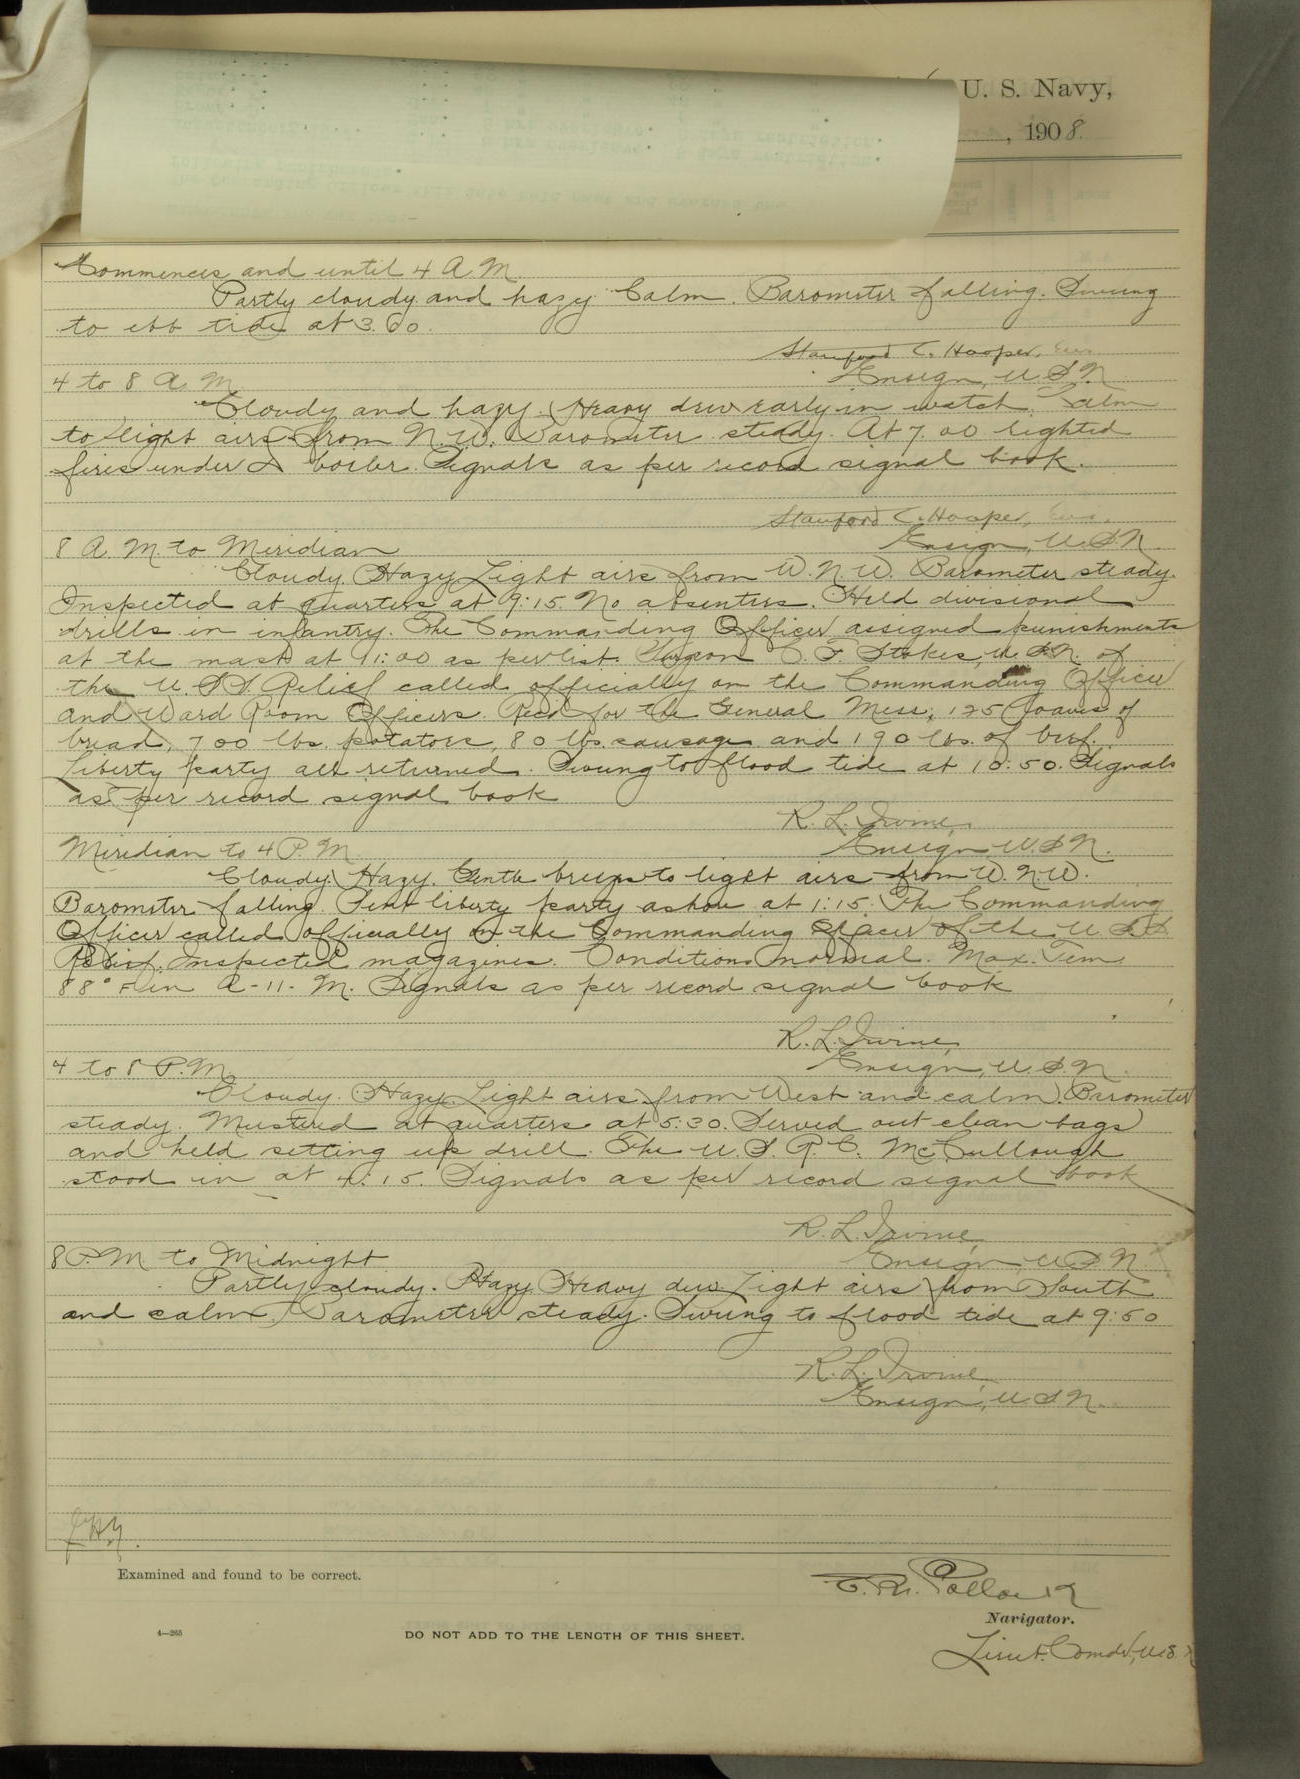 U. S. Navy,
, 1908.
Commences and until 4 A.M.
Partly cloudy and hazy. Calm. Barometer falling. Swung
to ebb tide at 3.00.
Stanford C. Hooper,
Ensign, U.S.N.
4 to 8 A.M.
Cloudy and hazy. Heavy dew early in watch. Calm
to light airs from N.W. Barometer steady. At 7.00 lighted
fires under boiler. Signals as per record signal book.
Stanford C. Hooper,
Ensign, U.S.N.
8 A.M. to Meridian
Cloudy. Hazy. Light airs from W.N.W. Barometer steady.
Inspected at quarters at 9:15. No absentees. Held divisional
drills in infantry. The Commanding Officer assigned punishments
at the mast at 11:00 as per list. Surgeon C. F. Stokes, U.S.N. of
the U.S.S. Relief called officially on the Commanding Officer
and Ward Room Officers. Recd. for the General Mess, 125 loaves of
bread, 700 lbs. potatoes, 80 lbs. sausage and 190 lbs. of beef.
Liberty party all returned. Swung to flood tide at 10:50. Signals
as per record signal book
R. L. Irvine,
Ensign U.S.N.
Meridian to 4 P.M.
Cloudy. Hazy. Gentle breeze to light airs from W.N.W.
Barometer falling. Sent liberty party ashore at 1:15. The Commanding
Officer called officially on the Commanding Officer of the U.S.S.
Relief. Inspected magazines. Conditions normal. Max. Tem.
88° F. in A-11-M. Signals as per record signal book
R. L. Irvine,
Ensign, U.S.N.
4 to 8 P.M.
Cloudy. Hazy. Light airs from West and calm. Barometer
steady. Mustered at quarters at 5:30. Served out clean bags
and held setting up drill. The U.S.R.C. McCullough
stood in at 4:15. Signals as per record signal book
R. L. Irvine,
Ensign, U.S.N.
8 P.M. to Midnight
Partly cloudy. Hazy. Heavy dew. Light airs from South
and calm. Barometer steady. Swung to flood tide at 9:50
R. L. Irvine,
Ensign, U.S.N.
Examined and found to be correct.
E. R. Pollock
Navigator.
4—265
DO NOT ADD TO THE LENGTH OF THIS SHEET.
Lieut. Comdr., U.S.N.